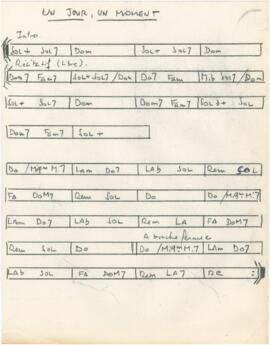 UN JOUR, UN MOMENT
Intro
SOL+ SOL7 | Dom | SOL+ SOL7 | Dom
Récitatif (libre).
Dom7 Fam7 | SOL+ SOL7/Dom | Do7 Fam | Mib SOL7/Dom
SOL+ SOL | Dom | Dom7 Fam7 | SOL
Dom7 Fam7 | SOL+
DO | LAm DO7 | LAb SOL | REm SOL
FA DOM7 | REm SOL | DO | DO
LAm DO7 | LAb SOL | REm LA | FA DOM7
A bouche fermée
REm SOL | DO | DO | LAm DO7
LAb SOL | FA DOM7 | REm LA7